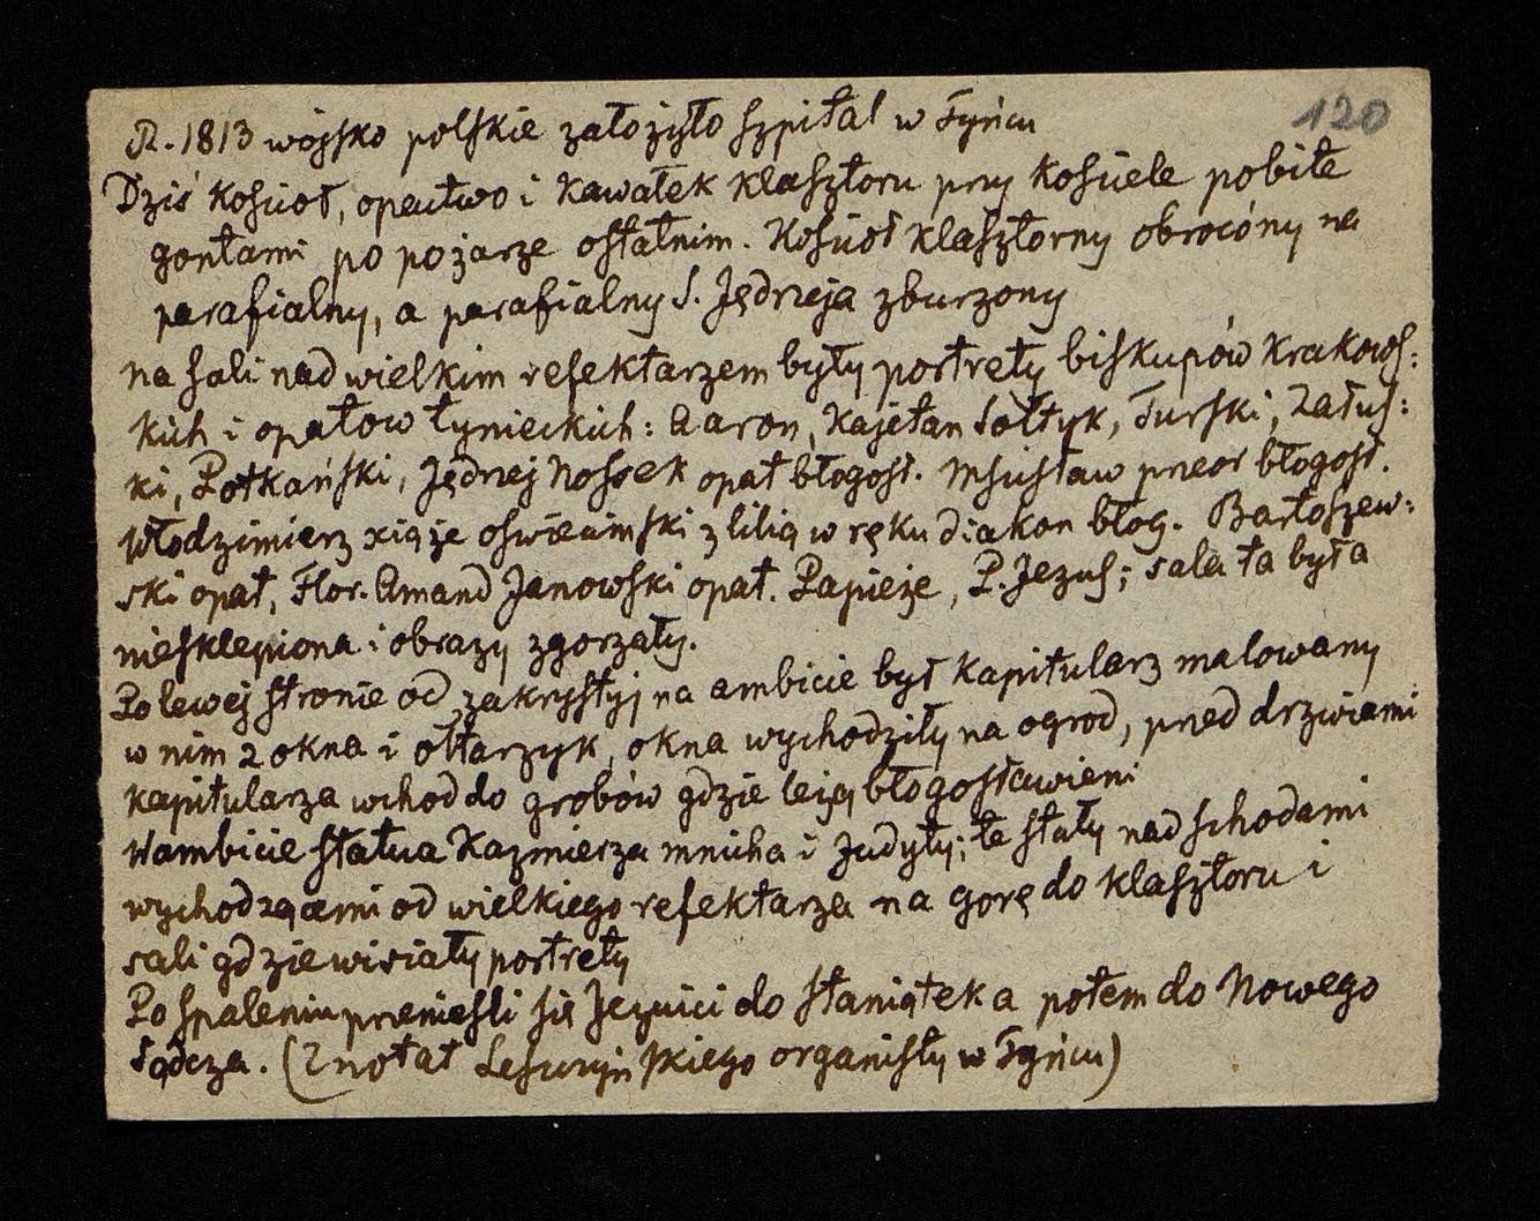 120
R. 1813 wojsko polskie założyło szpital w Tyńcu
Dziś kościoł, opactwo i kawałek klasztoru przy kościele pobite
gontami po pożarze ostatnim. Kościoł klasztorny obrocóny na
parafialny, a parafialny S. Jędrzeja zburzony
na sali nad wielkim refektarzem były portrety biskupów krakows:
kich i opatow tynieckich: Aaron, Kajetan Sołtyk, Turski, Załus:
ki, Potkański, Jędrzej Nossek opat błogosł. Mścisław przeor błogosł.
Włodzimierz xiąże oswiecimski z lilią w ręku diakon błog. Bartoszew:
ski opat, Flor. Amand Janowski opat. Papieże, P. Jezus; sala ta była
niesklepiona i obrazy zgorzały.
Po lewej stronie od zakrystyj na ambicie był kapitularz malowany
w nim 2 okna i ołtarzyk, okna wychodziły na ogrod, przed drzwiami
kapitularza wchod do grobów gdzie leżą błogosławieni
W ambicie statua Kazmierza mnicha i Judyty; te stały nad schodami
wychodzącemi od wielkiego refektarza na gorę do klasztoru i
sali gdzie wisiały portrety
Po spaleniu przeniesli się Jezuici do Staniątek a potem do Nowego
Sącza. (Z notat organisty w Tyńcu)